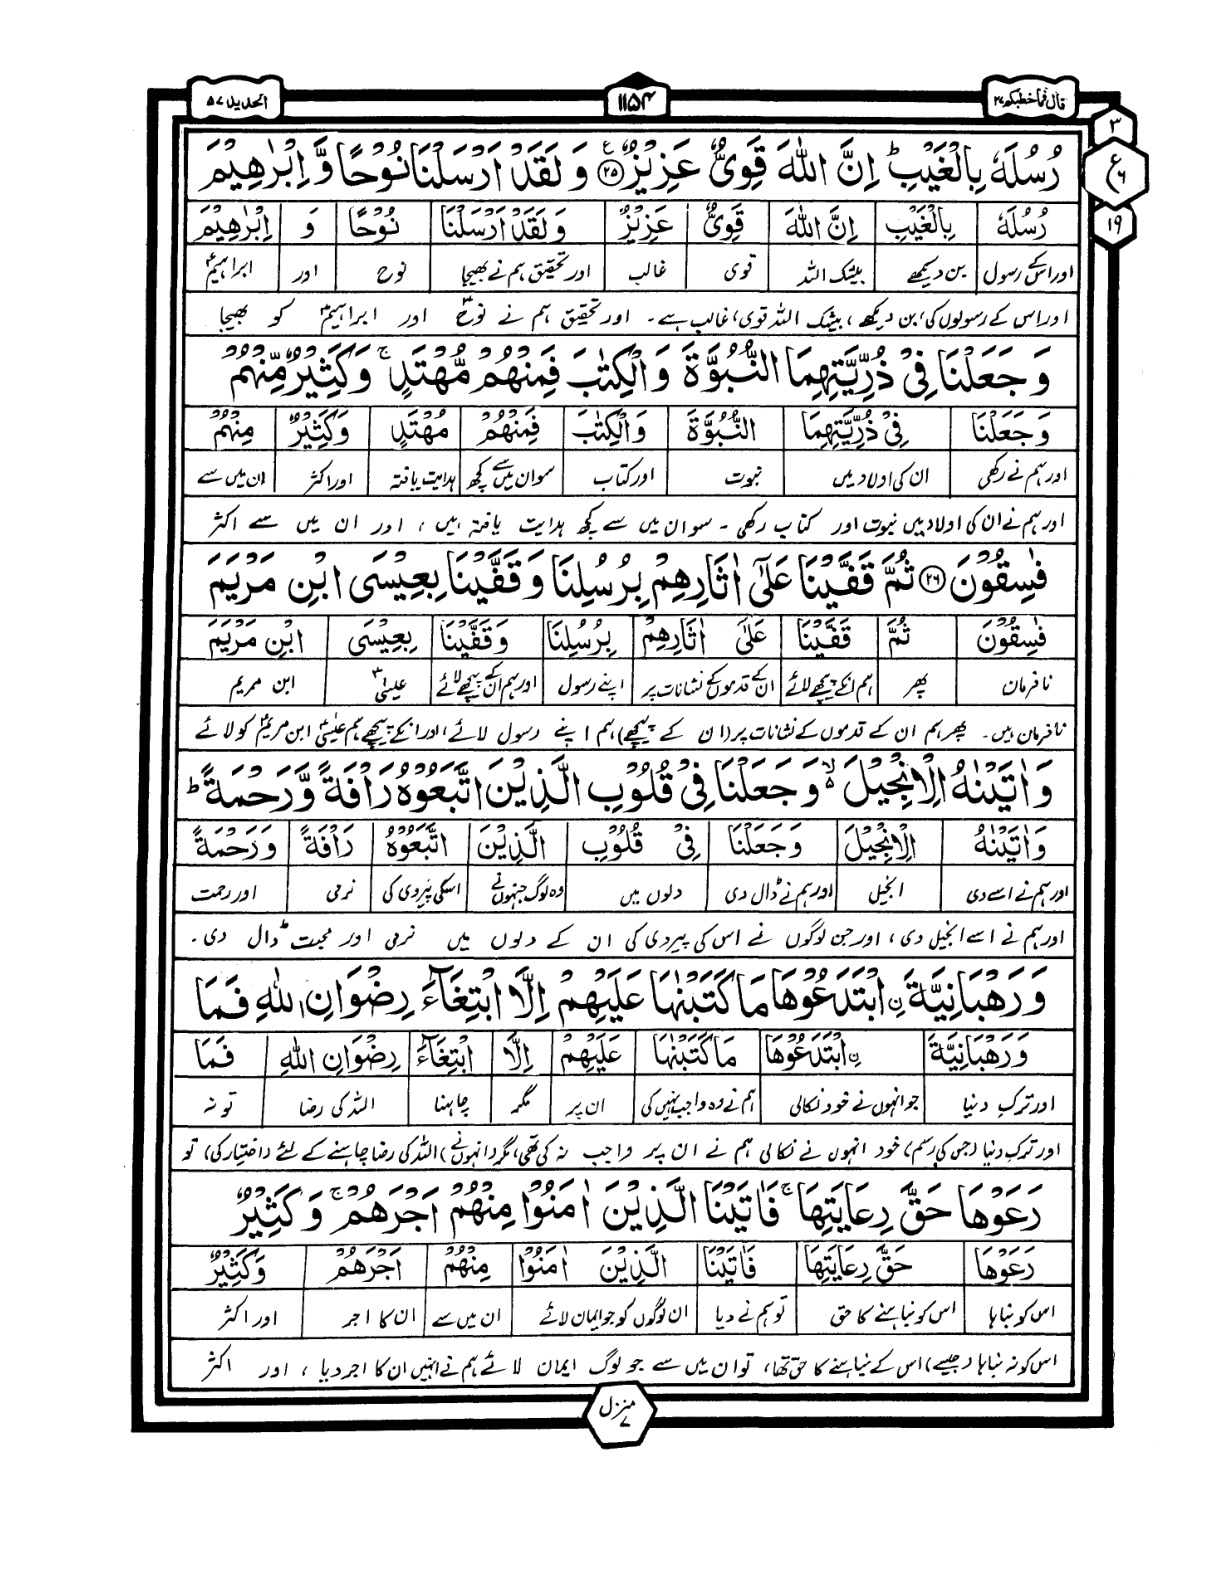 قال فما خطبکم ۲۷
۱۱۵۴
الحدید ۵۷
۳
ع ۶
۱۹
رُسُلَهٗ بِالْغَیْبِ ؕ اِنَّ اللّٰهَ قَوِیٌّ عَزِیْزٌ ﴿۲۵﴾ ع وَ لَقَدْ اَرْسَلْنَا نُوْحًا وَّ اِبْرٰهِیْمَ
رُسُلَهٗ بِالْغَیْبِ اِنَّ اللّٰهَ قَوِیٌّ عَزِیْزٌ وَ لَقَدْ اَرْسَلْنَا نُوْحًا وَ اِبْرٰهِیْمَ
اور اس کے رسول بن دیکھے بیشک اللہ قوی غالب اور تحقیق ہم نے بھیجا نوح اور ابراہیمؑ
اور اس کے رسولوں کی، بن دیکھے، بیشک اللہ قوی، غالب ہے۔ اور تحقیق ہم نے نوحؑ اور ابراہیمؑ کو بھیجا
وَ جَعَلْنَا فِیْ ذُرِّیَّتِهِمَا النُّبُوَّةَ وَ الْكِتٰبَ فَمِنْهُمْ مُّهْتَدٍ ۚ وَ كَثِیْرٌ مِّنْهُمْ
وَ جَعَلْنَا فِیْ ذُرِّیَّتِهِمَا النُّبُوَّةَ وَ الْكِتٰبَ فَمِنْهُمْ مُهْتَدٍ وَ كَثِیْرٌ مِنْهُمْ
اور ہم نے رکھی ان کی اولاد میں نبوت اور کتاب سو ان میں سے کچھ ہدایت یافتہ اور اکثر ان میں سے
اور ہم نے ان کی اولاد میں نبوت اور کتاب رکھی۔ سو ان میں سے کچھ ہدایت یافتہ ہیں، اور ان میں سے اکثر
فٰسِقُوْنَ ﴿۲۶﴾ ثُمَّ قَفَّیْنَا عَلٰۤی اٰثَارِهِمْ بِرُسُلِنَا وَ قَفَّیْنَا بِعِیْسَی ابْنِ مَرْیَمَ
فٰسِقُوْنَ ثُمَّ قَفَّیْنَا عَلٰۤی اٰثَارِهِمْ بِرُسُلِنَا وَ قَفَّیْنَا بِعِیْسَی ابْنِ مَرْیَمَ
نافرمان پھر ہم انکے پیچھے لائے ان کے قدموں کے نشانات پر اپنے رسول اور ہم ان کے پیچھے لائے عیسیٰؑ ابن مریم
نافرمان ہیں۔ پھر ہم ان کے قدموں کے نشانات پر (ان کے پیچھے) ہم اپنے رسول لائے، اور انکے پیچھے ہم عیسیٰؑ ابن مریمؑ کو لائے
وَ اٰتَیْنٰهُ الْاِنْجِیْلَ ۙ۬ وَ جَعَلْنَا فِیْ قُلُوْبِ الَّذِیْنَ اتَّبَعُوْهُ رَاْفَةً وَّ رَحْمَةً ؕ
وَ اٰتَیْنٰهُ الْاِنْجِیْلَ وَ جَعَلْنَا فِیْ قُلُوْبِ الَّذِیْنَ اتَّبَعُوْهُ رَاْفَةً وَ رَحْمَةً
اور ہم نے اسے دی انجیل اور ہم نے ڈال دی دلوں میں وہ لوگ جنہوں نے اسکی پیروی کی نرمی اور رحمت
اور ہم نے اسے انجیل دی، اور جن لوگوں نے اس کی پیروی کی ان کے دلوں میں نرمی اور محبت ڈال دی۔
وَ رَهْبَانِیَّةَ ِ۟ابْتَدَعُوْهَا مَا كَتَبْنٰهَا عَلَیْهِمْ اِلَّا ابْتِغَآءَ رِضْوَانِ اللّٰهِ فَمَا
وَ رَهْبَانِیَّةَ ِ۟ابْتَدَعُوْهَا مَا كَتَبْنٰهَا عَلَیْهِمْ اِلَّا ابْتِغَآءَ رِضْوَانِ اللّٰهِ فَمَا
اور ترکِ دنیا جو انہوں نے خود نکالی ہم نے وہ واجب نہیں کی ان پر مگر چاہنا اللہ کی رضا تو نہ
اور ترکِ دنیا (جس کی رسم) خود انہوں نے نکالی ہم نے ان پر واجب نہ کی تھی، مگر (انہوں نے) اللہ کی رضا چاہنے کے لئے (اختیار کی) تو
رَعَوْهَا حَقَّ رِعَایَتِهَا ۚ فَاٰتَیْنَا الَّذِیْنَ اٰمَنُوْا مِنْهُمْ اَجْرَهُمْ ۚ وَ كَثِیْرٌ
رَعَوْهَا حَقَّ رِعَایَتِهَا فَاٰتَیْنَا الَّذِیْنَ اٰمَنُوْا مِنْهُمْ اَجْرَهُمْ وَ كَثِیْرٌ
اس کو نباہا اس کو نباہنے کا حق تو ہم نے دیا ان لوگوں کو جو ایمان لائے ان میں سے ان کا اجر اور اکثر
اس کو نہ نباہا (جیسے) اس کے نباہنے کا حق تھا، تو ان میں سے جو لوگ ایمان لائے ہم نے انہیں ان کا اجر دیا، اور اکثر
منزل ۷